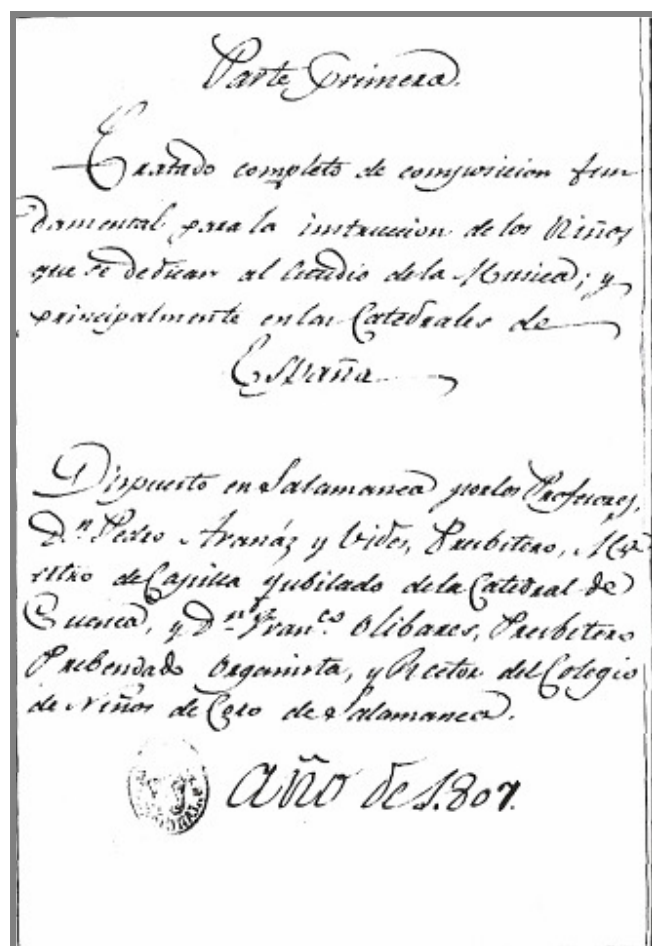 Parte Primera.
Tratado completo de composicion fun
damental para la instruccion de los Niños
que se dedican al Estudio de la Musica; y
principalmente en las Catedrales de
España
Dispuesto en Salamanca por los Profesores,
Dn. Pedro Aranáz y Vides, Presbitero, Ma
estro de Capilla jubilado de la Catedral de
Cuenca, y Dn. Franco. Olibares, Presbitero
Prebendado Organista, y Rector del Colegio
de Niños de Coro de Salamanca.
Año de 1.807.